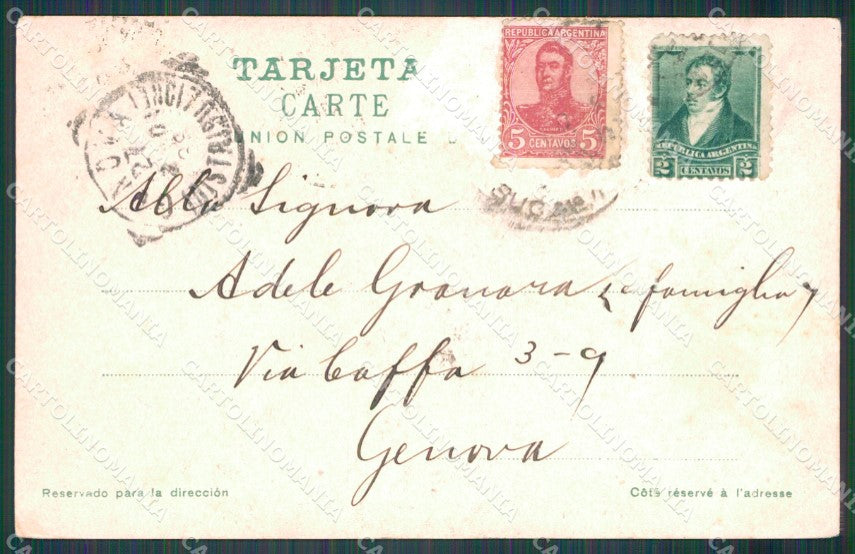 TARJETA
CARTE
UNION POSTALE
REPUBLICA ARGENTINA
5 CENTAVOS 5
REPUBLICA ARGENTINA
2 CENTAVOS 2
Alla Signora
Adele Granara e famiglia
Via Caffa 3-9
Genova
Reservado para la dirección
Côté réservé à l'adresse
CARTOLINOMANIA